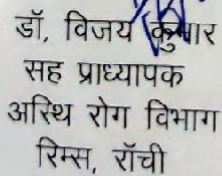 डॉ, विजय कुमार
सह प्राध्यापक
अस्थि रोग विभाग
रिम्स, राँची